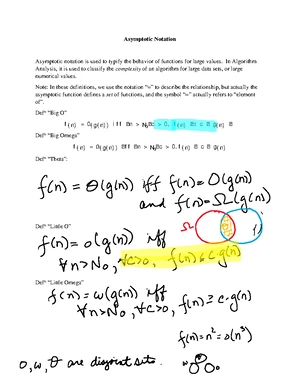 Asymptotic Notation
Asymptotic notation is used to typify the behavior of functions for large values. In Algorithm
Analysis, it is used to classify the complexity of an algorithm for large data sets, or large
numerical values.
Note: In these definitions, we use the notation "=" to describe the relationship, but actually the
asymptotic function defines a set of functions, and the symbol "=" actually refers to "element
of".
Defⁿ "Big O"
f(n) = O(g(n)) iff
Defⁿ "Big Omega"
f(n) = Ω(g(n)) iff
Defⁿ "Theta":
f(n) = Θ(g(n)) iff f(n) = O(g(n))
and f(n) = Ω(g(n))
Ω
Defⁿ "Little O"
f(n) = o(g(n)) iff
∀n>N₀, ∀c>0, f(n) ≤ c·g(n)
Defⁿ "Little Omega"
f(n) = ω(g(n)) iff
∀n>N₀, ∀c>0, f(n) ≥ c·g(n)
f(n) = n² = o(n³)
o, ω, Θ are disjoint sets.